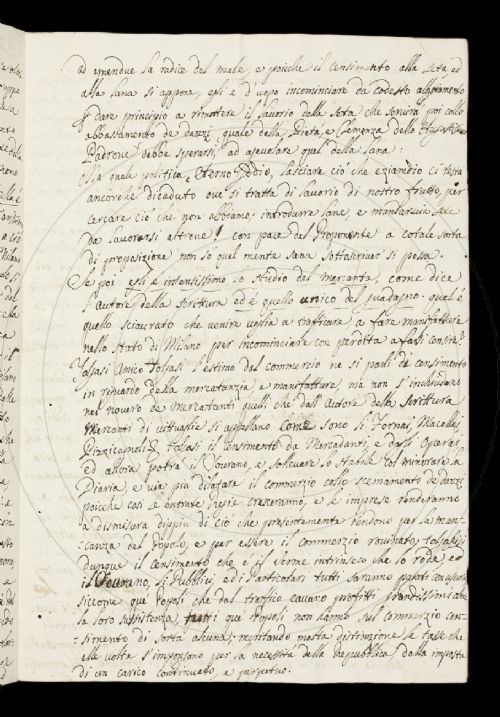 ad emendue la radice del male, e poiche il censimento alla seta ed
alla lana si appone, egli è d'uopo incominciare da codesto
dare principio a rimettere il lavorio della seta che servirà poi collo
abbassamento de dazzi quale dalla Pietà, e Clemenza dello
Padrone debbe sperarsi, ad agevolare quel della lana:
Ma quale politica Eterno Iddio, lasciare ciò che eziamdio ci resta
ancorchè dicaduto ove si tratta di lavorio di nostro frutto, per
cercare ciò che non abbiamo, introdurre lane, e mandar via sete
da lavorarsi altrove! con pace del Proponente a cotale sorta
di proposizione non so qual mente sana sottoscriver si possa.
Se poi egli è intensissimo lo studio del mercante, come dice
l'autore della scrittura ed è quello unico del guadagno: qual è
quello sciaurato che venire voglia a trafficare, a fare manifatture
nello Stato di Milano per incominciare con perdita a farsi
Tolgasi Amico tolgasi l'estimo del commercio ne si parli de censimento
in riguardo della mercatanzia e manifatture, mà non s'includano
nel novero de Mercattanti quelli che dall'Autore della Scrittura
Merconti di vituaglie si appellano come sono li Fornai, Macellaj
Pizzicagnoli tolgasi il censimento da Mercadanti, e dagli Operaj,
ed allora potrà il Sovrano, e sollevare lo stabile col minorare la
Diaria, e via più dilatare il commercio collo scemamento de dazzi
poiche così le entrate regie cresceranno, e le imprese renderanno
a dismisura dippiù di ciò che presentemente rendono per la man=
canza del Popolo, e per essere il commercio rovinato, tolgasi
dunque il censimento che è il verme intrinseco che lo rode, e
il Sovrano, li Pubblici, ed i Particolari tutti saranno
siccome que Popoli che dal traffico cavano profitti grandissimi
la loro sussistenza, tutti que Popoli non hanno sul commercio cen=
simento di sorta alcuna; meritando molta distinzione le tasse che
alle volte s'impongono per la necessità della Repubblica, dalla imposta
di un carico continuato, e perpetuo.